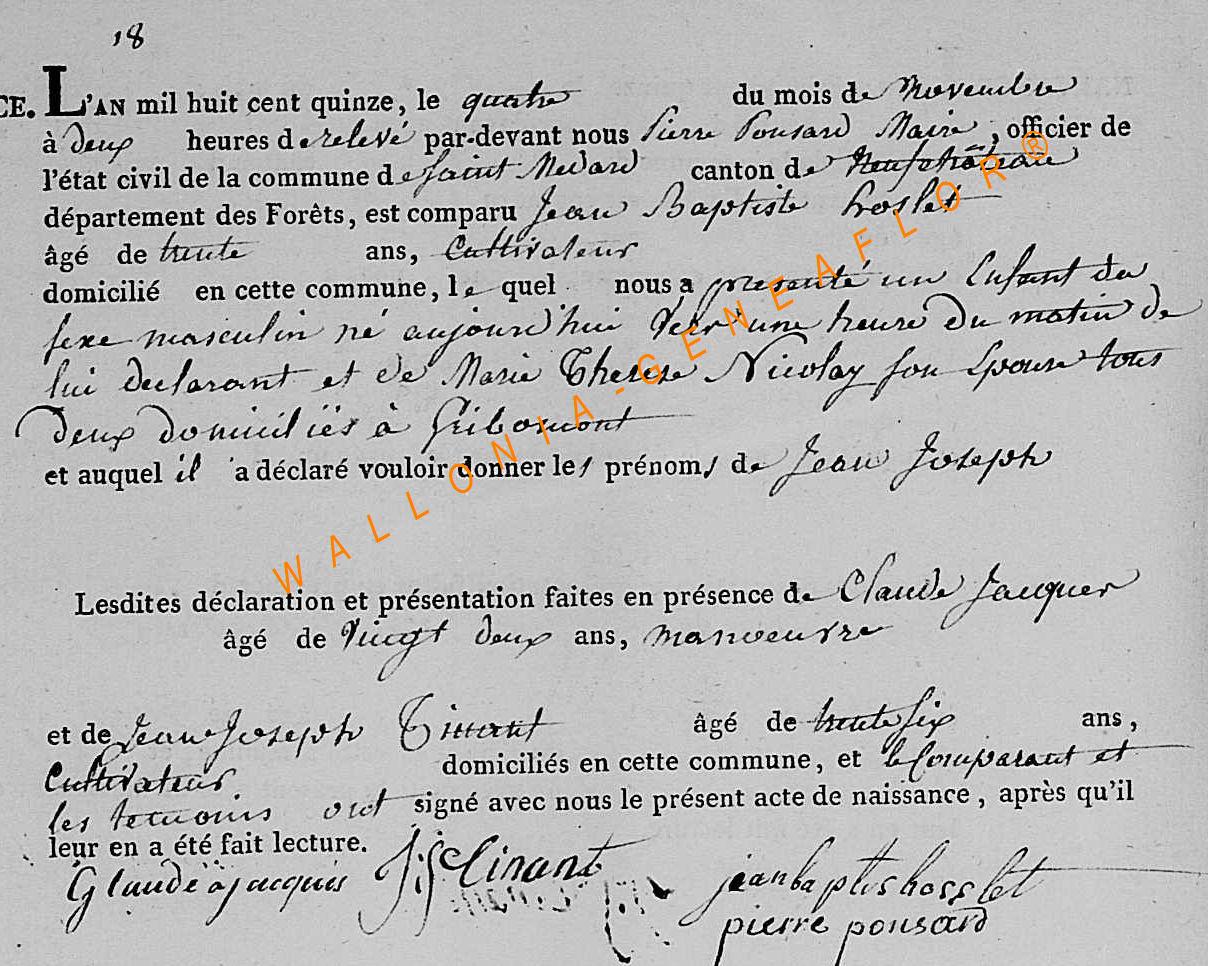 18
CE. L'AN mil huit cent quinze, le quatre du mois de Novembre
à deux heures de relevé par-devant nous Pierre Ponsard Maire, officier de
l'état civil de la commune de Saint Medard canton de Neufchâteau
département des Forêts, est comparu Jean Baptiste hosslet
âgé de trente ans, Cultivateur
domicilié en cette commune, le quel nous a presenté un Enfant du
sexe masculin né aujourd'hui vers une heure du matin de
lui declarant et de Marie Therese Nicolay son Epouse tous
deux domiciliés à Gribomont
et auquel il a déclaré vouloir donner les prénoms de Jean Joseph
Lesdites déclaration et présentation faites en présence de Claude Jacques
âgé de vingt deux ans, manoeuvre
et de Jean Joseph Tinant âgé de trente six ans,
Cultivateur domiciliés en cette commune, et le Comparant et
les temoins ont signé avec nous le présent acte de naissance, après qu'il
leur en a été fait lecture.
Glaude jacques J j Tinant jean baptis hosslet
pierre ponsard
WALLONIA-GENEAFLOR®